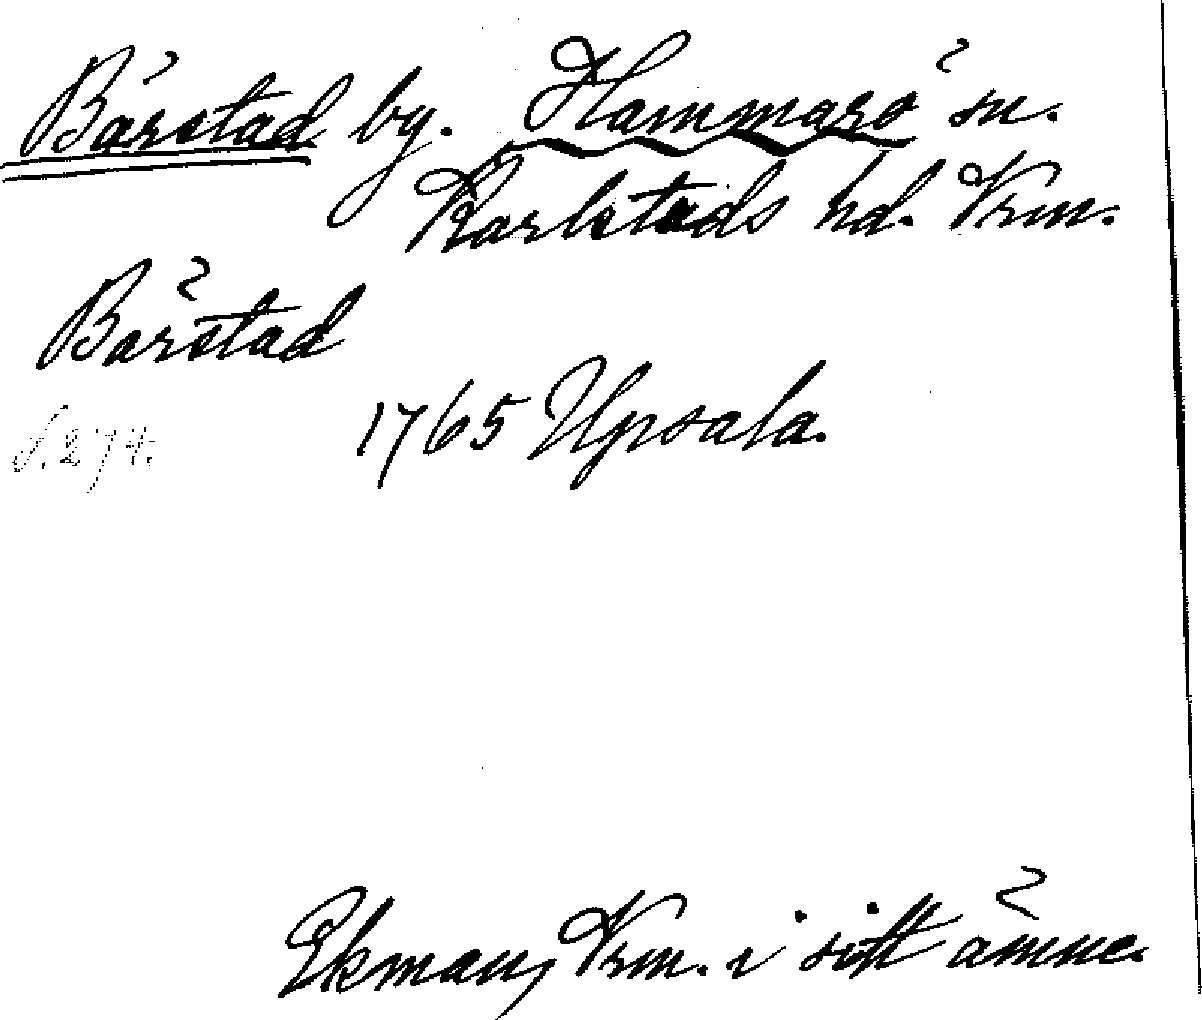 Bärstad by. Hammarö sn.
Karlstads hd. Vrm.
Bärstad
1765 Upsala.
s. 274.
Ekman, Vrm. i sitt ämne.